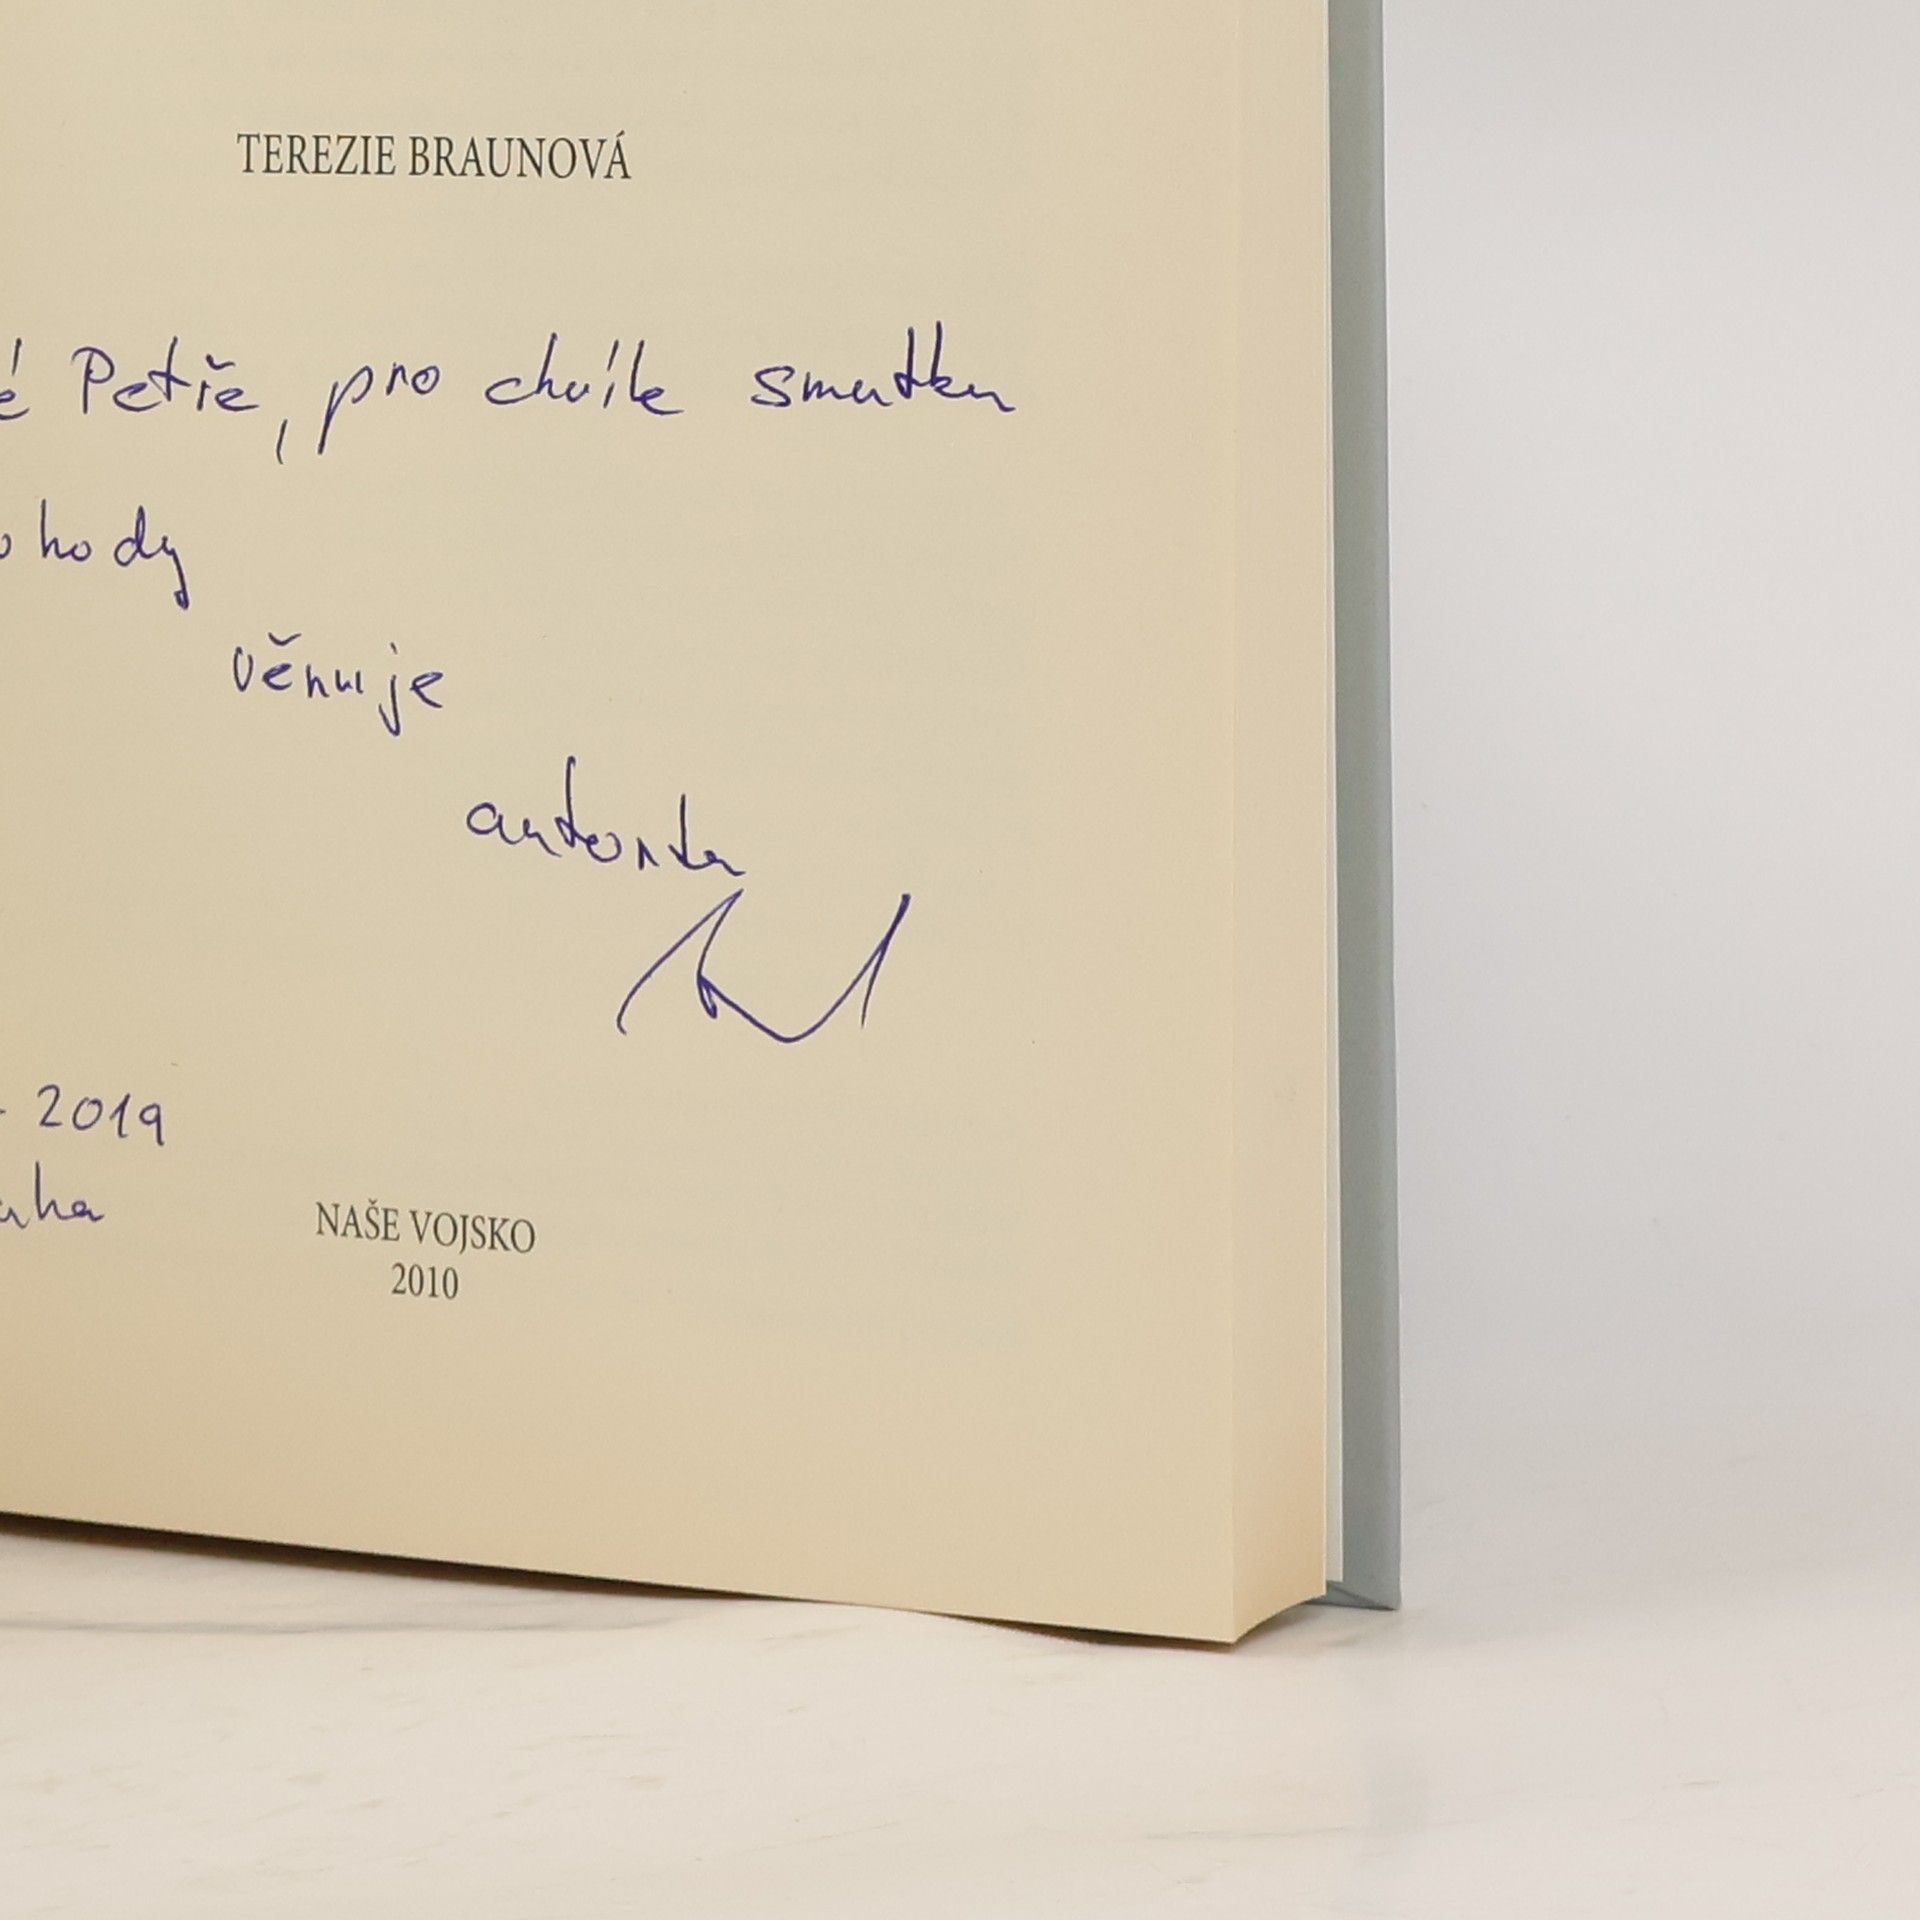 TEREZIE BRAUNOVÁ
é Petře, pro chvíle smutku
ohody
věnuje
autorka
2019
aha
NAŠE VOJSKO
2010